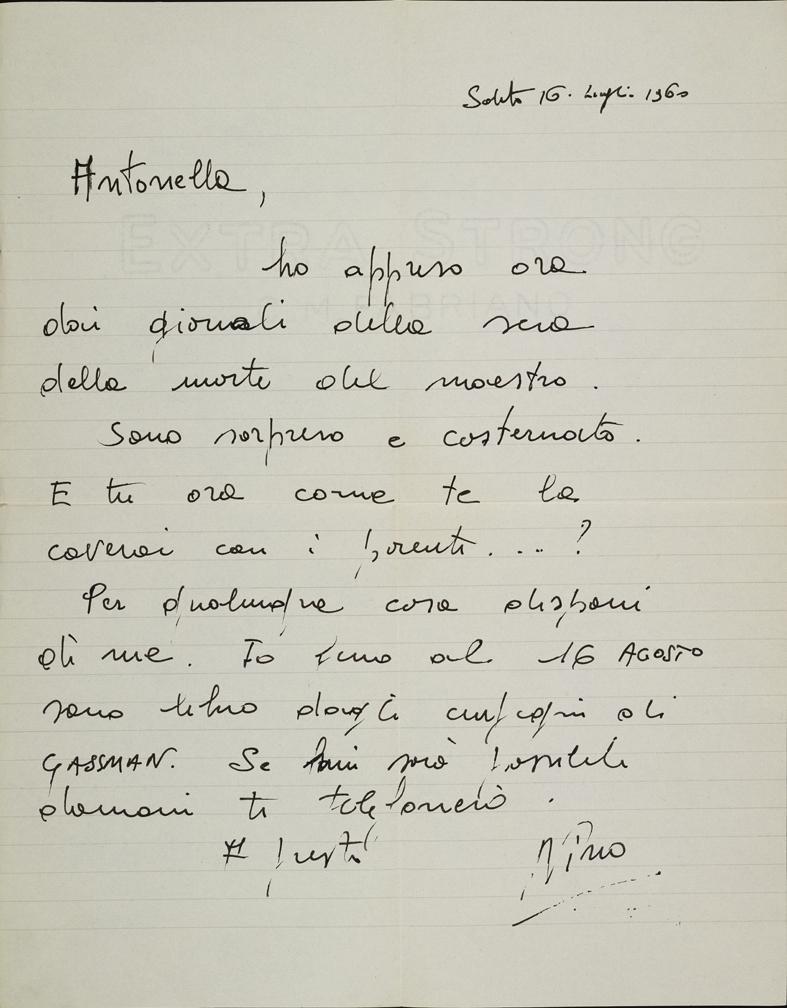 Sabato 16. Luglio 1960
Antonella,
EXTRA STRONG
ho appreso ora
C M FABRIANO
dai giornali della sera
della morte del maestro.
Sono sorpreso e costernato.
E tu ora come te la
caverai con i parenti. ... ?
Per qualunque cosa disponi
di me. Io fino al 16 AGOSTO
sono libero dagli impegni di
GASSMAN. Se mi sarà possibile
domani ti telefonerò.
A presto
Nino